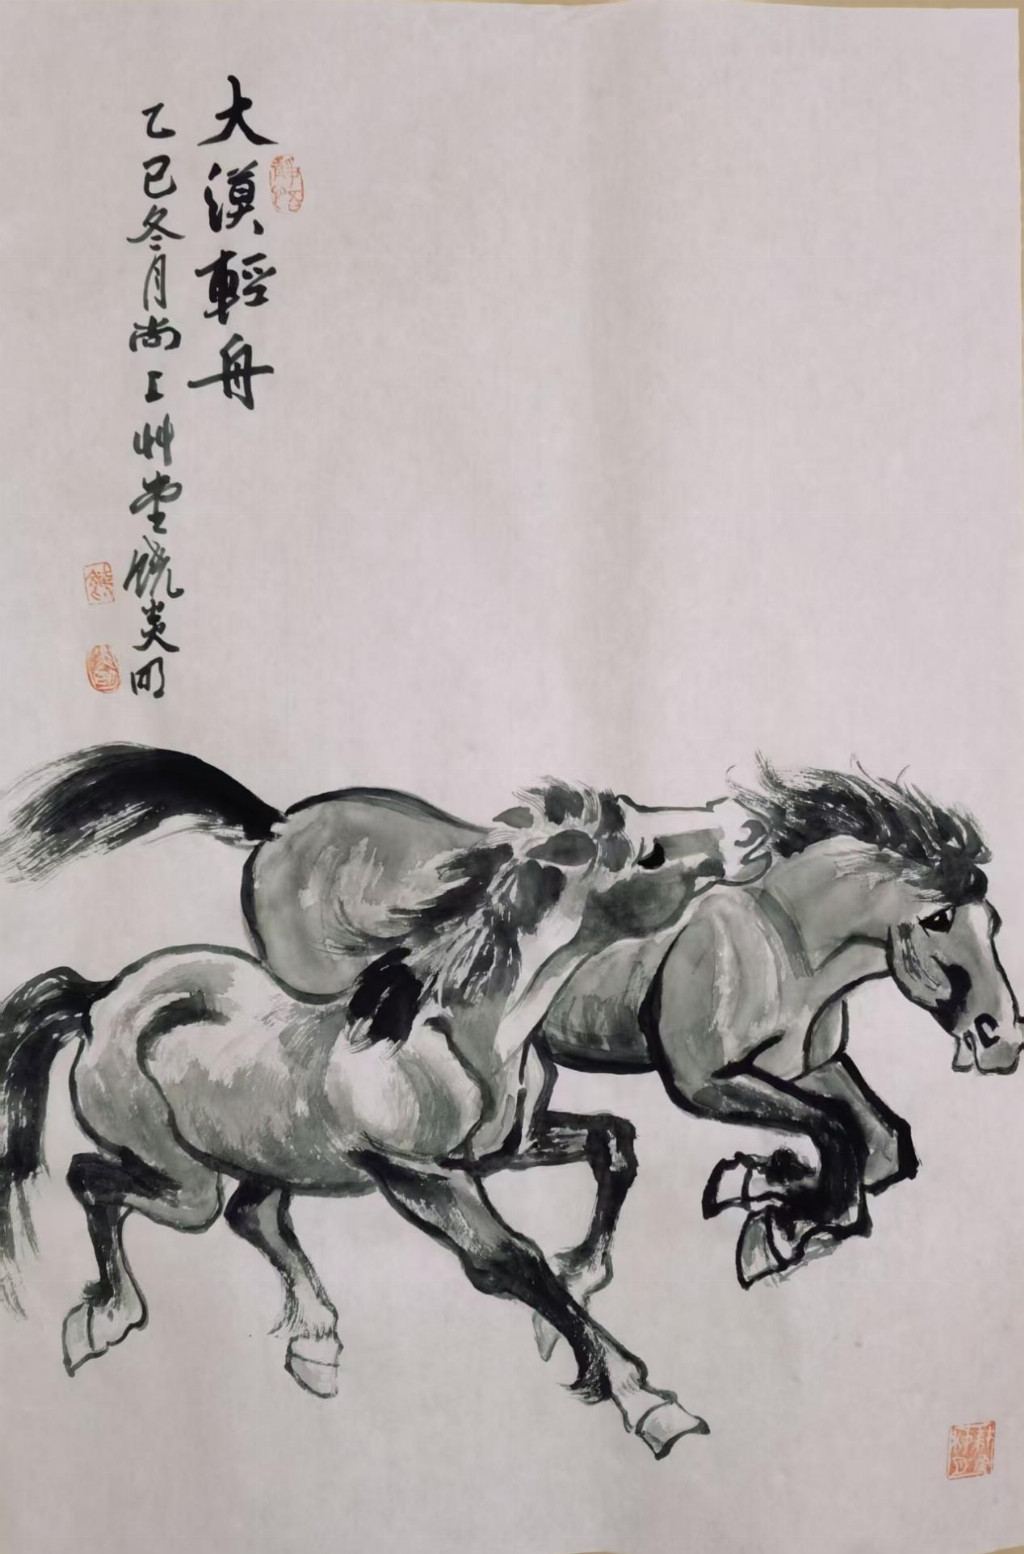 大漠輕舟
乙巳冬月尚上艸堂饒炎明